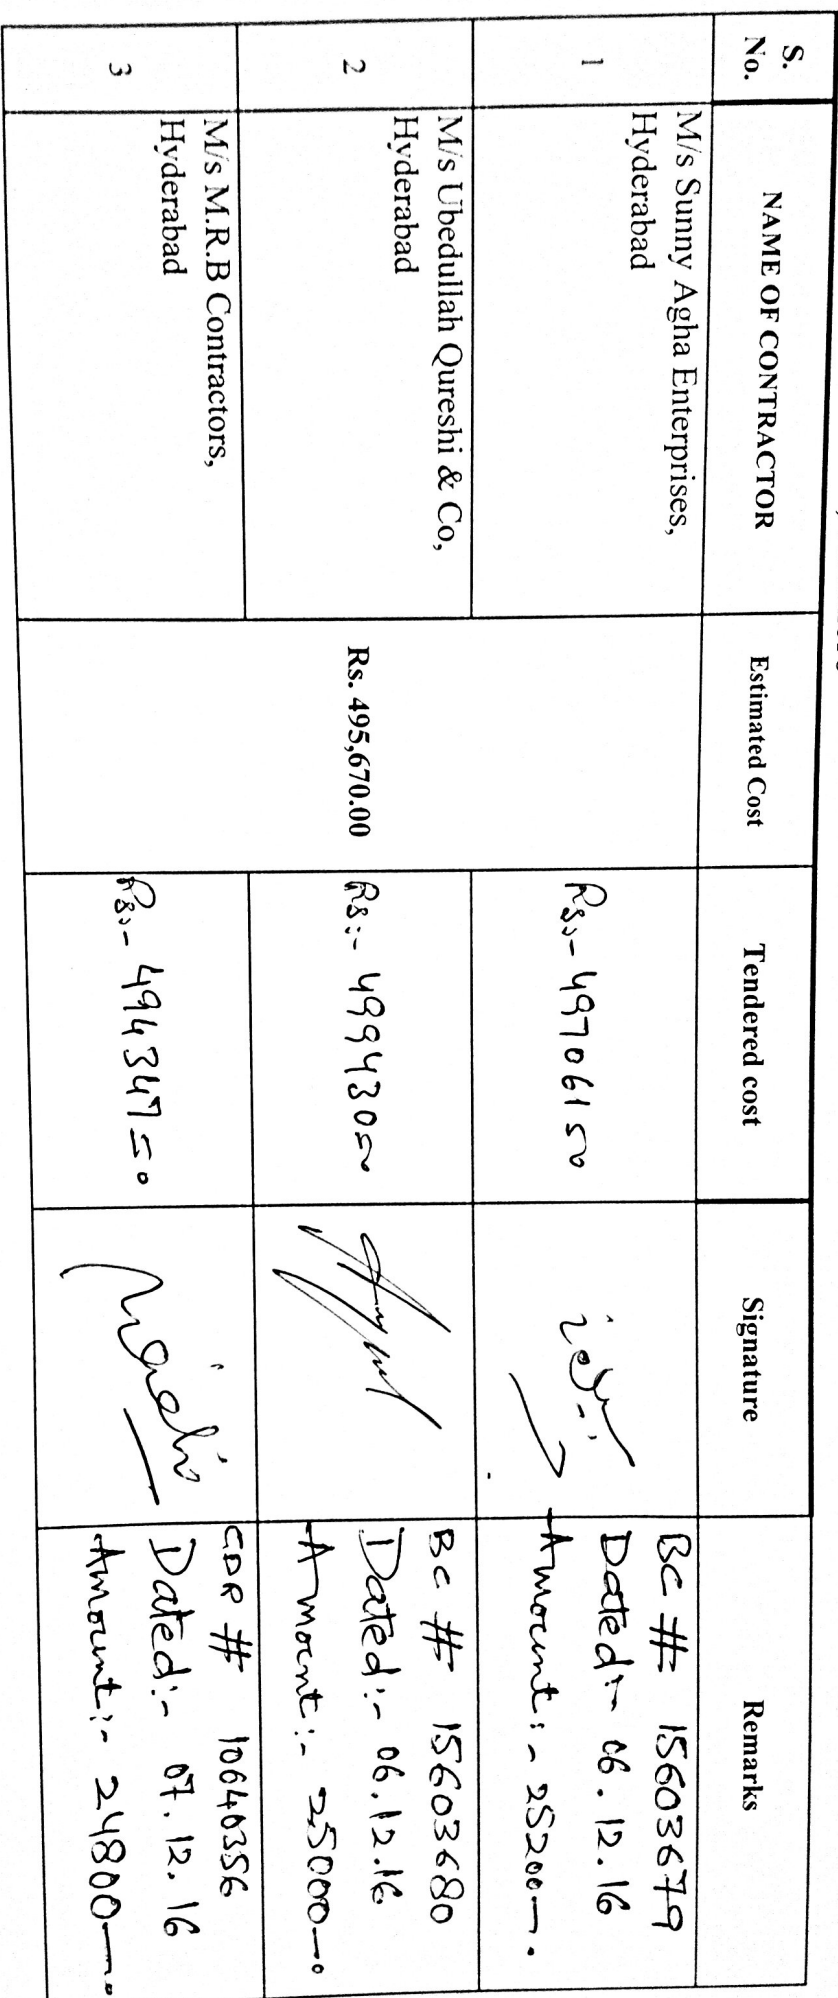 S. No.
NAME OF CONTRACTOR
Estimated Cost
Tendered cost
Signature
Remarks
1
M/s Sunny Agha Enterprises,
Hyderabad
Rs:- 497061 50
BC # 15603679
Dated:- 06.12.16
Amount:- 25200—.
2
M/s Ubedullah Qureshi & Co,
Hyderabad
Rs. 495,670.00
Rs:- 499430 50
BC # 15603680
Dated:- 06.12.16
Amount:- 25000—.
3
M/s M.R.B Contractors,
Hyderabad
Rs:- 494347 50
CDR # 10640356
Dated:- 07.12.16
Amount:- 24800—.